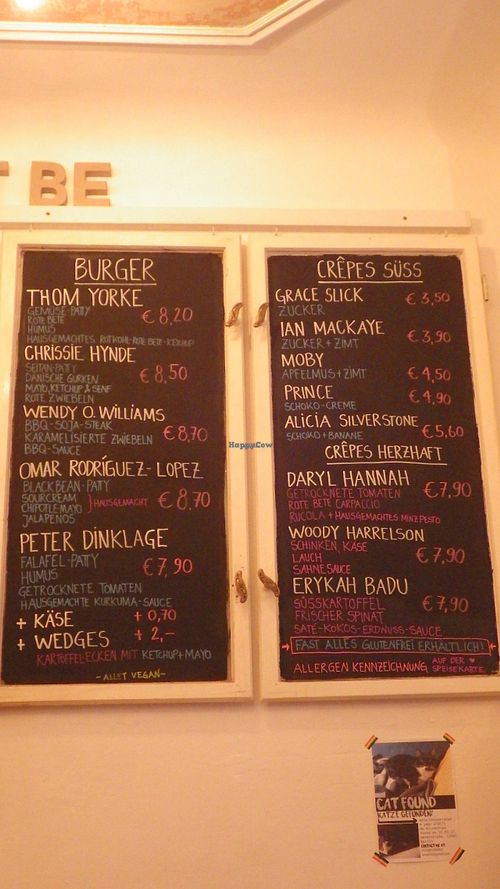 T BE
BURGER
THOM YORKE
GEMÜSE-PATTY
ROTE BETE
HUMUS
HAUSGEMACHTES ROTKOHL-ROTE BETE-KETCHUP
€ 8,20
CHRISSIE HYNDE
SEITAN-PATTY
DÄNISCHE GURKEN
MAYO, KETCHUP & SENF
ROTE ZWIEBELN
€ 8,50
WENDY O. WILLIAMS
BBQ-SOJA-STEAK
KARAMELISIERTE ZWIEBELN
BBQ-SAUCE
€ 8,70
OMAR RODRÍGUEZ-LOPEZ
BLACK BEAN-PATTY
SOURCREAM
CHIPOTLE MAYO } HAUSGEMACHT
JALAPENOS
€ 8,70
PETER DINKLAGE
FALAFEL-PATTY
HUMUS
GETROCKNETE TOMATEN
HAUSGEMACHTE KURKUMA-SAUCE
€ 7,90
+ KÄSE + 0,70
+ WEDGES + 2,-
KARTOFFELECKEN MIT KETCHUP+MAYO
-ALLET VEGAN-
CRÊPES SÜSS
GRACE SLICK € 3,50
ZUCKER
IAN MACKAYE € 3,90
ZUCKER + ZIMT
MOBY € 4,50
APFELMUS + ZIMT
PRINCE € 4,90
SCHOKO-CREME
ALICIA SILVERSTONE € 5,60
SCHOKO + BANANE
CRÊPES HERZHAFT
DARYL HANNAH
GETROCKNETE TOMATEN
ROTE BETE CARPACCIO
RUCOLA + HAUSGEMACHTES MINZPESTO
€ 7,90
WOODY HARRELSON
SCHINKEN, KÄSE
LAUCH
SAHNESAUCE
€ 7,90
ERYKAH BADU
SÜSSKARTOFFEL
FRISCHER SPINAT
SATÉ-KOKOS-ERDNUSS-SAUCE
€ 7,90
FAST ALLES GLUTENFREI ERHÄLTLICH!
ALLERGEN KENNZEICHNUNG AUF DER SPEISEKARTE
HappyCow
CAT FOUND
KATZE GEFUNDEN!